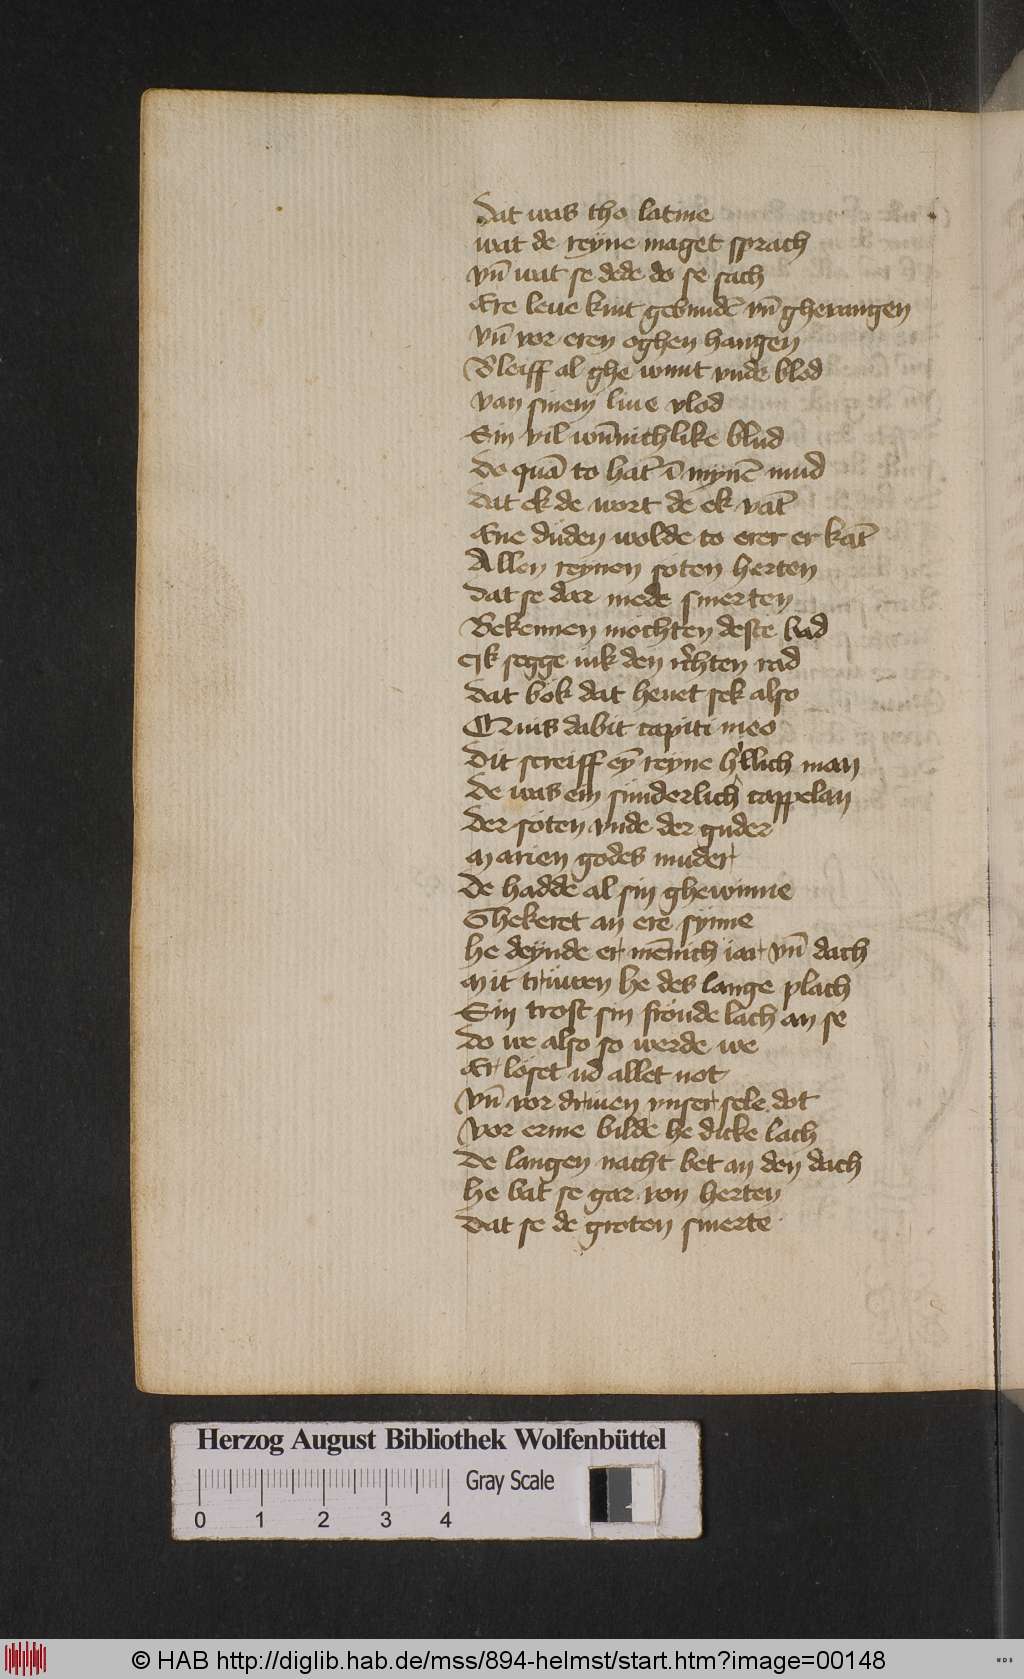 Dat was tho latine
wat de reyne maget sprach
vn̄ wat se dede do se sach
Ere leue kint gebundē vn̄ gherangen
vn̄ vor eren oghen hangen
Bleiff al ghe wunt vnde blod
van sinem liue vlod
Sin vil wūnichlike blud
do quā to hāt ī mynē mud
dat ek de wort de ek vāt
Ene düden wolde to erer er kāt
Allen reynen söten herten
dat se dar mede smerten
Bekennen möchten deste bad
Jk segge iuk den rechten rad
dat bök dat heuet sek also
Quis dabit capiti meo
Dit screiff eȳ reyne h'llich man
De was ein sunderlich cappelan
der söten vnde der guder
Marien godes muder
De hadde al sin ghewinne
Ghekeret an ere synne
he deynde er mēnich iar vn̄ dach
Mit trüwen he des lange plach
Sin trost sin fröude lach an se
do we also so werde we
Er löset ud allet not
vn̄ vor driuen vnser sele dot
vor erme bilde he dicke lach
De langen nacht bet an den dach
he bat se gar von herten
Dat se de groten smerte
Herzog August Bibliothek Wolfenbüttel
Gray Scale
0 1 2 3 4
© HAB http://diglib.hab.de/mss/894-helmst/start.htm?image=00148